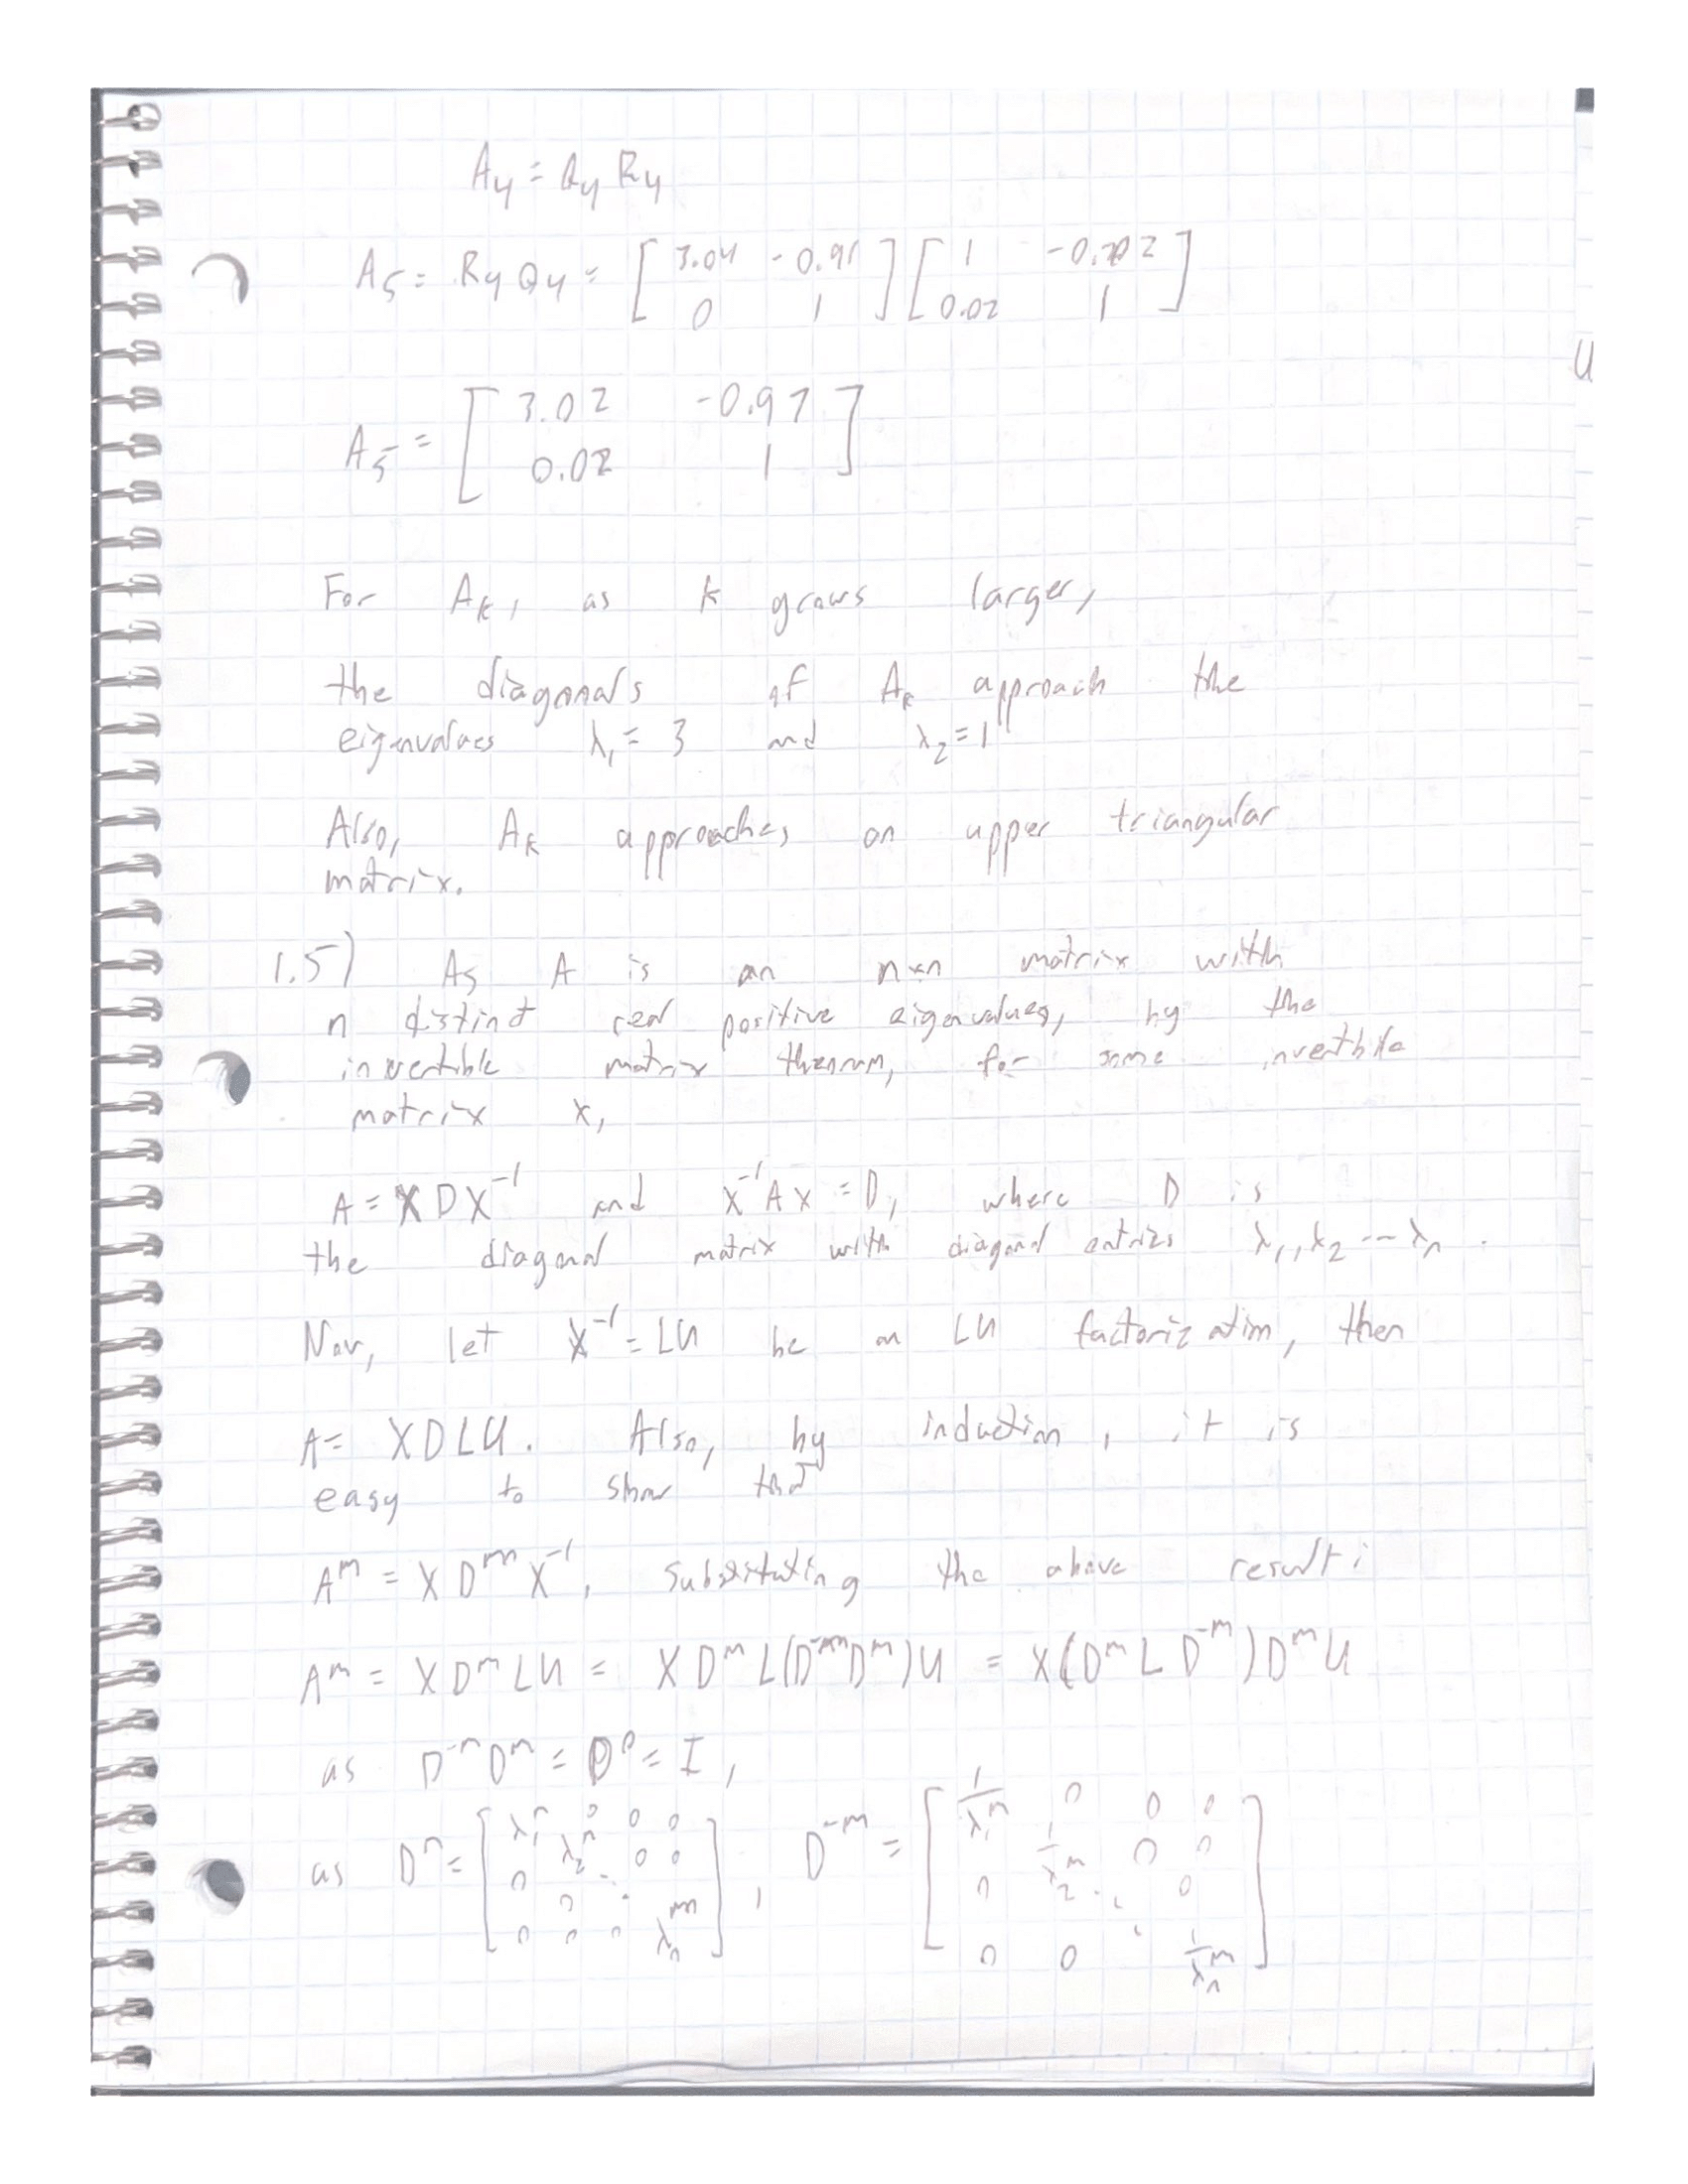 A₄ = Q₄ R₄
A₅ = R₄ Q₄ = [ 3.04 -0.91 ; 0 1 ] [ 1 -0.02 ; 0.02 1 ]
U
A₅ = [ 3.02 -0.97 ; 0.02 1 ]
For Aₖ, as k grows larger,
the diagonals of Aₖ approach the
eigenvalues λ₁ = 3 and λ₂ = 1
Also, Aₖ approaches an upper triangular
matrix.
1.5) As A is an n×n matrix with
n distinct real positive eigenvalues, by the
invertible matrix theorem, for some invertible
matrix X,
A = XDX⁻¹ and X⁻¹AX = D, where D is
the diagonal matrix with diagonal entries λ₁, λ₂ --- λₙ.
Now, let X⁻¹ = LU be an LU factorization, then
A = XDLU. Also, by induction, it is
easy to show that
Aᵐ = XDᵐX⁻¹, substituting the above result:
Aᵐ = XDᵐLU = XDᵐL(D⁻ᵐDᵐ)U = X(DᵐLD⁻ᵐ)DᵐU
as D⁻ᵐDᵐ = D⁰ = I,
as Dᵐ = [ λ₁ᵐ 0 0 0 ; 0 λ₂ᵐ 0 0 ; 0 ⋱ ; 0 0 0 λₙᵐ ], D⁻ᵐ = [ 1/λ₁ᵐ 0 0 0 ; 0 1/λ₂ᵐ 0 0 ; ⋱ 0 ; 0 0 1/λₙᵐ ]